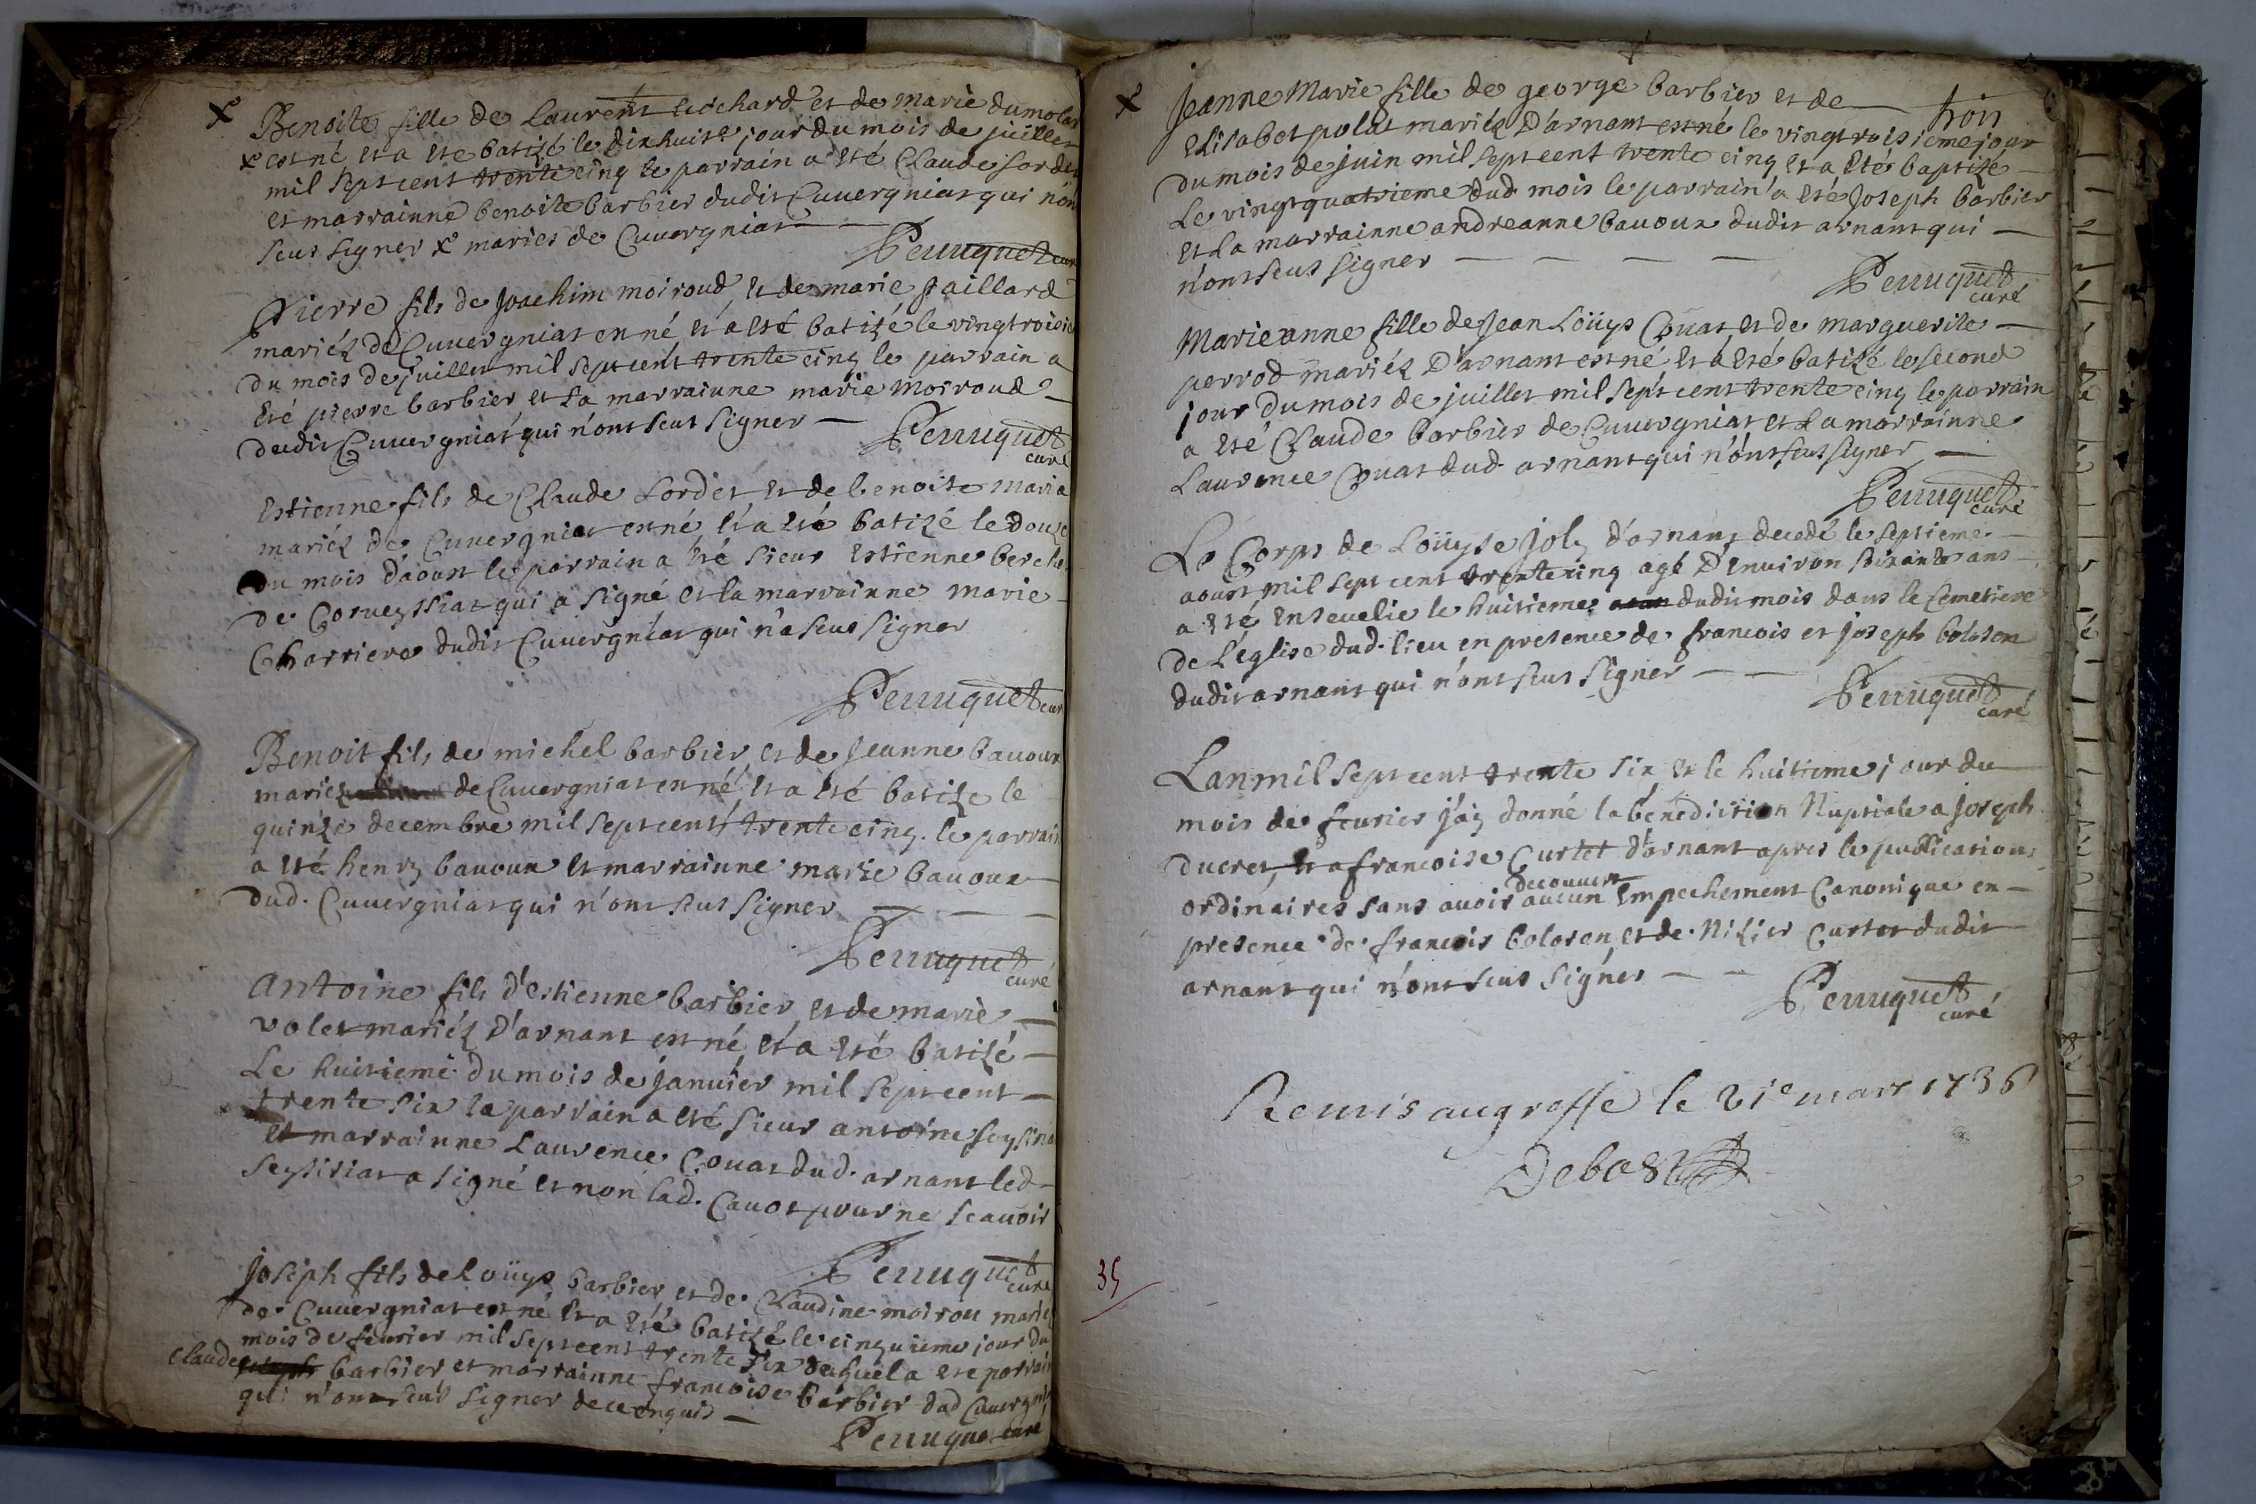 x Benoite fille de Laurent Guichard et de marie dumolar
x est né et a ete batizé le dix huit.e jour du mois de juillet
mil sept cent trente cinq le parrain a été Claude sordet
et marrainne benoite barbier dudit Cuuergniat qui n'ont
seus signer x mariés de Cuuergniat
Perruquet curé
Pierre fils de Joachim moiroud, et de marie gaillard
mariéz de Cuuergniat en né et a eté batizé le vingtroisie
du mois de juillet mil sept cent trente cinq le parrain a
été pierre barbier et la marrainne marie Moiroud
dudit Cuuergniat qui n'ont seus signer
Perruquet
curé
Estienne fils de Claude Sordet et de benoite Maria
mariéz de Cuuergniat est né, et a eté batizé le douze
du mois d'aoust le parrain a eté sieur Estienne berche
de Corueyssiat qui a signé et la marrainne marie
Charriere dudit Cuuergniat qui n'a seus signer
Perruquet cur
Benoit fils de michel barbier, et de Jeanne bauoux
mariéz de Cuuergniat en né, et a eté batize le
quinze decembre mil sept cent trente cinq. le parrain
a eté henry bauoux et marrainne marie bauoux
dud. Cuuergniat qui n'ont seus signer
Perruquet
curé
Antoine fils d'estienne barbier, et de marie
volet mariéz D'arnant est né, et a eté batizé
Le huitieme du mois de januier mil sept cent
trente six le parrain a eté sieur antoine seysiria
et marrainne Laurence Couat dud. arnant led
Seysiriat a signé et non lad. Couat pour ne scauoir
Perruquet
curé
Joseph fils de Loüys barbier et de Claudine moirou marié
de Cuuergniat est né et a eté batizé le cinquieme jour du
mois de feurier mil sept cent trente six duquel a ete parrain
Claude barbier et marrainne francoise barbier dud Cuuergnia
qui n'ont seus signer de ce enquis
Perruque curé
x Jeanne Marie fille de george barbier et de
trois
Elisabet polat mariéz D'arnant est né le vingt troisieme jour
du mois de juin mil sept cent trente cinq et a eté baptize
Le vingt quatrieme dud. mois le parrain a eté Joseph barbier
et la marrainne andreanne bauoux dudit arnant qui
n'ont seus signer
Perruquet
curé
Marieanne fille de Jean Loüys Couat et de marguerite
perrod mariéz D'arnant est né et a eté batizé le second
jour du mois de juillet mil sept cent trente cinq le parrain
a eté Claude barbier de Cuuergniat et la marrainne
Laurence Couat dud. arnant qui n'ont seus signer
Perruquet
curé
Le Corps de Loüyse Joly d'arnant decedé le septieme
aoust mil sept cent trente cinq agé D'enuiron soixante ans
a eté enseuelie le huitieme dudit mois dans le Cemetiere
de L'eglise dud. lieu en presence de francois et joseph boloson
dudit arnant qui n'ont seus signer
Perruquet
curé
Lan mil sept cent trente six et le huitieme jour du
mois de feurier j'ay donné la bénediction Nuptiale a joseph
ducret, et a francoise Curtet d'arnant apres les publications
decouuert
ordinaires sans auoir aucun Empechement Canonique en
presence de francois boloson, et de Nizier Curtet dudit
arnant qui n'ont seus signer
Perruquet
curé
Remis au greffe le 21e mars 1736
Debost
35